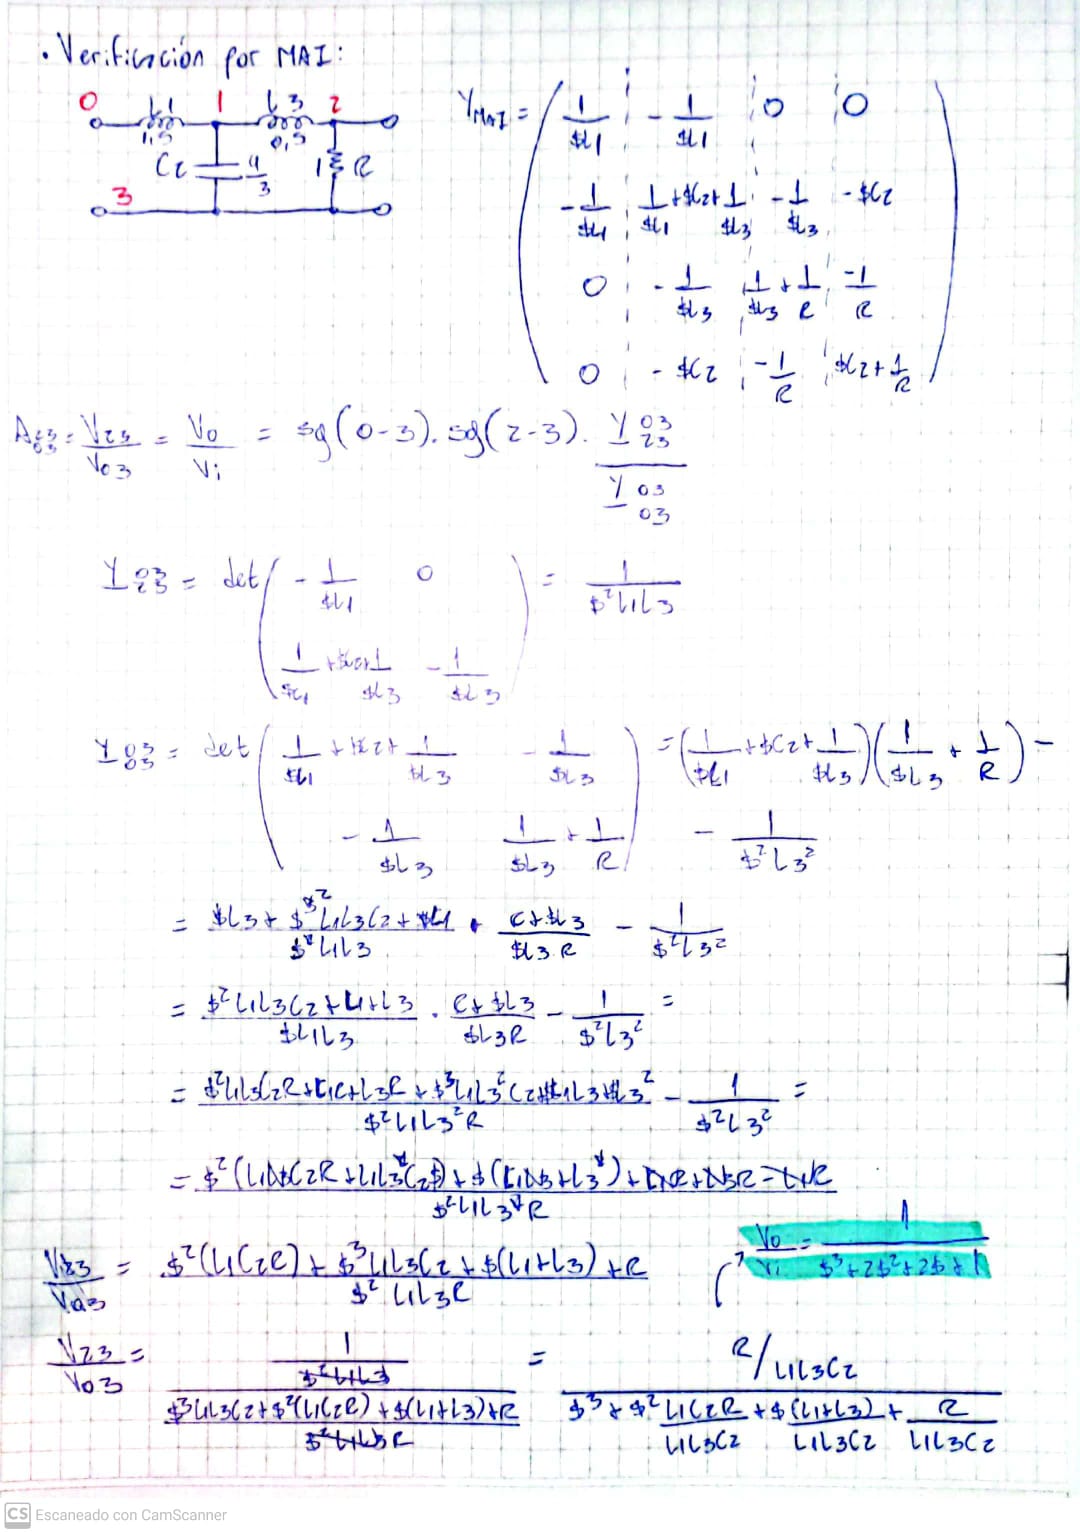 · Verificación por MAI:
0 L1 1 L3 2
1,5 0,5
C2 4/3 1 R
3
Y_MAI = ( 1/$L1 | -1/$L1 | 0 | 0
-1/$L1 | 1/$L1 + $C2 + 1/$L3 | -1/$L3 | -$C2
0 | -1/$L3 | 1/$L3 + 1/R | -1/R
0 | -$C2 | -1/R | $C2 + 1/R )
A 23/03 = V23/V03 = Vo/Vi = sg(0-3). sg(2-3). Y 03/23 / Y 03/03
Y 03/23 = det ( -1/$L1 0 ; 1/$L1 + $C2 + 1/$L3 -1/$L3 ) = 1/$²L1L3
Y 03/03 = det ( 1/$L1 + $C2 + 1/$L3 -1/$L3 ; -1/$L3 1/$L3 + 1/R ) = (1/$L1 + $C2 + 1/$L3)(1/$L3 + 1/R) -
- 1/$²L3²
= $L3 + $³L1L3C2 + $L1 / $²L1L3 · R+$L3 / $L3·R - 1/$²L3²
= $²L1L3C2 + L1+L3 / $L1L3 . R+$L3 / $L3R - 1/$²L3² =
= $²L1L3C2R + L1R + L3R + $³L1L3²C2 + $L1L3 + $L3² / $²L1L3²R - 1/$²L3² =
= $²(L1L3C2R + L1L3²C2$) + $(L1L3+L3²) + L1R + L3R - L1R / $²L1L3²R
V03/V03 = $²(L1C2R) + $³L1L3C2 + $(L1+L3) + R / $²L1L3R
Vo/Vi = 1 / $³+2$²+2$+1
V23/V03 = 1/$²L1L3 / $³L1L3C2 + $²(L1C2R) + $(L1+L3)+R / $²L1L3R = R/L1L3C2 / $³ + $² L1C2R/L1L3C2 + $ (L1+L3)/L1L3C2 + R/L1L3C2
CS Escaneado con CamScanner